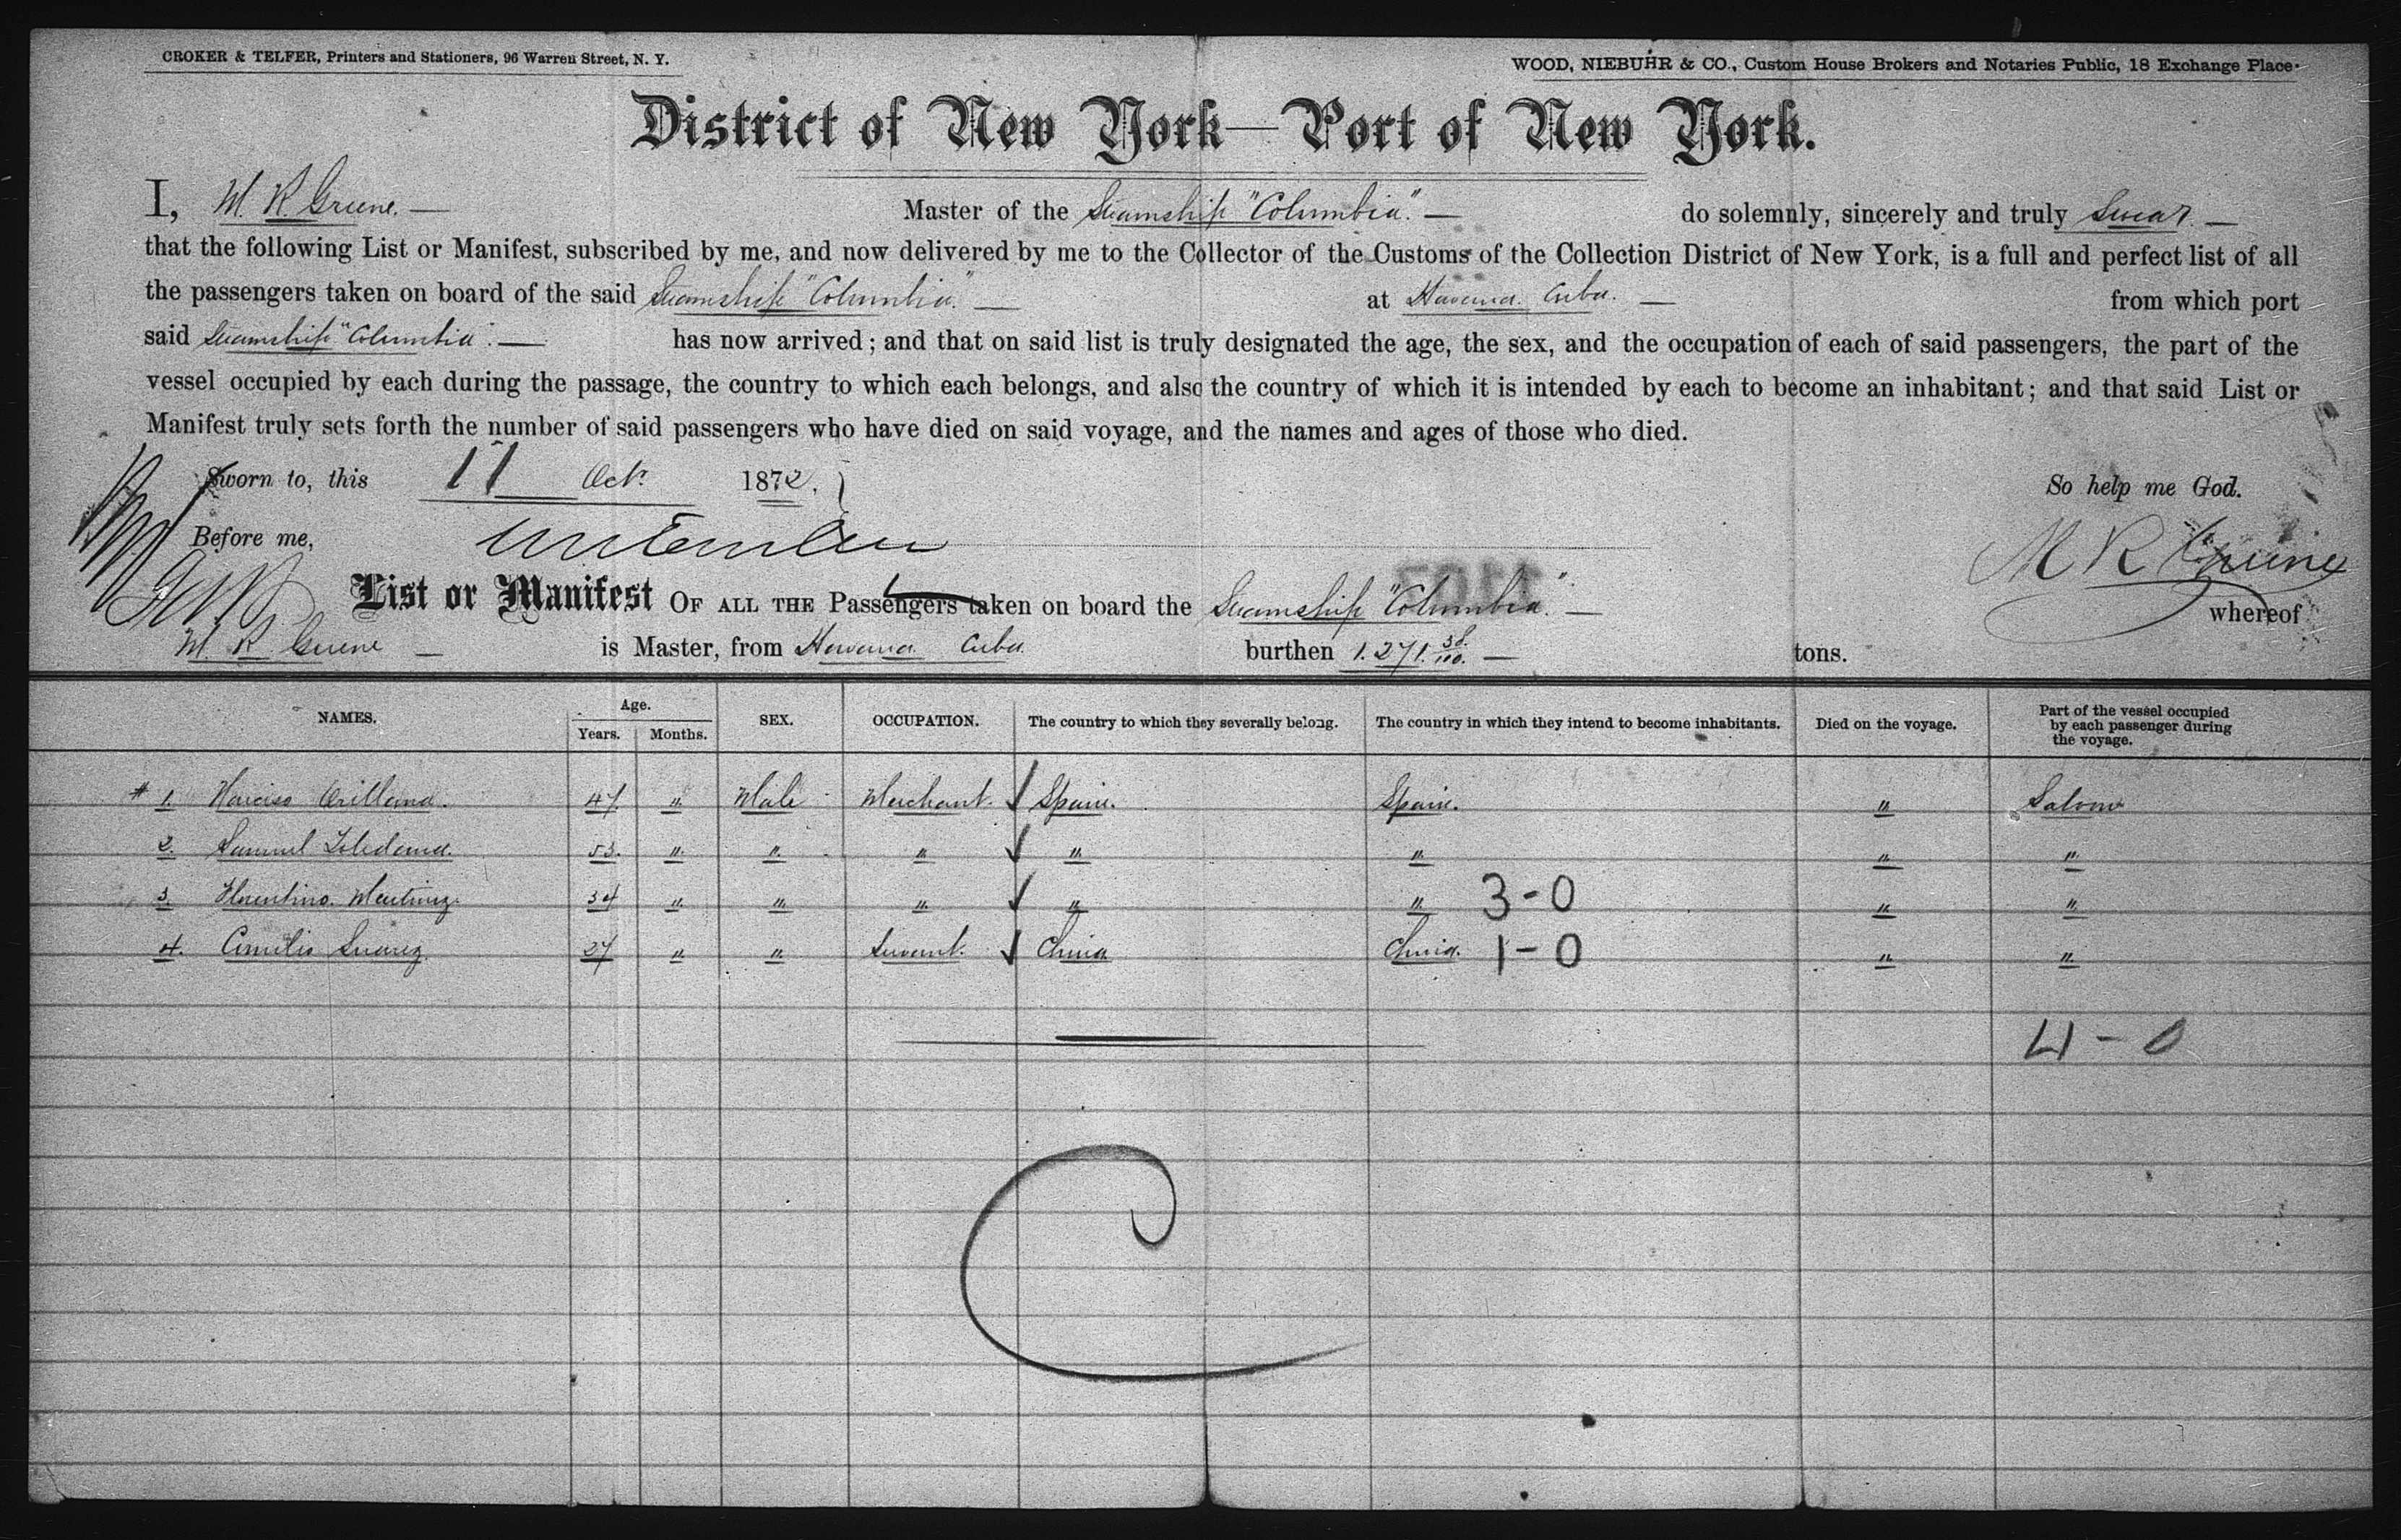 CROKER & TELFER, Printers and Stationers, 96 Warren Street, N. Y.
WOOD, NIEBUHR & CO., Custom House Brokers and Notaries Public, 18 Exchange Place.
District of New York—Port of New York.
I, M. R. Greene. — Master of the Steamship "Columbia". — do solemnly, sincerely and truly Swear. —
that the following List or Manifest, subscribed by me, and now delivered by me to the Collector of the Customs of the Collection District of New York, is a full and perfect list of all
the passengers taken on board of the said Steamship "Columbia". — at Havana. Cuba. — from which port
said Steamship "Columbia". — has now arrived; and that on said list is truly designated the age, the sex, and the occupation of each of said passengers, the part of the
vessel occupied by each during the passage, the country to which each belongs, and also the country of which it is intended by each to become an inhabitant; and that said List or
Manifest truly sets forth the number of said passengers who have died on said voyage, and the names and ages of those who died.
Sworn to, this 11 Octr 1872. So help me God.
Before me, M R Greene
List or Manifest OF ALL THE Passengers taken on board the Steamship "Columbia". — whereof
M. R. Greene — is Master, from Havana Cuba. burthen 1.271. 38/100. — tons.
NAMES. Age. Years. Months. SEX. OCCUPATION. The country to which they severally belong. The country in which they intend to become inhabitants. Died on the voyage. Part of the vessel occupied by each passenger during the voyage.
# 1. Narciso 47. " Male Merchant. Spain. Spain. " Saloon
2. Samuel Toledana. 53. " " " " " " "
3. Florentino. Martinez. 34 " " " " " 3-0 " "
4. Emilio Suarez. 27 " " Servant. China China. 1-0 " "
4-0